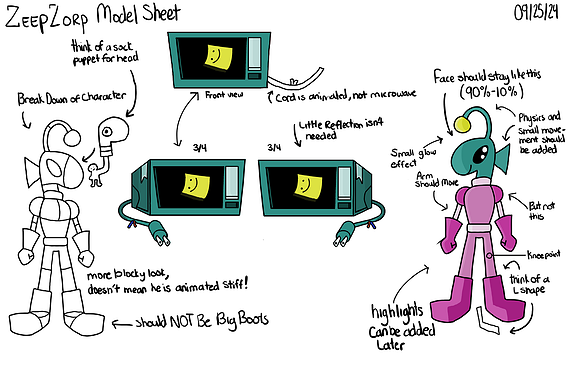 ZeepZorp Model Sheet
09/25/24
think of a sock
puppet for head
Break Down of Character
Front view
Cord is animated, not microwave
Little Reflection isn4
needed
3/4
3/4
more blocky look,
doesn't mean he is animated stiff!
should NOT Be Big Boots
Face should stay like this
(90%-10%)
Physics and
small move-
ment should
be added
Small glow
effect
Arm
Should More
But not
this
Kneepoint
think of a
L shape
highlights
Can be added
Later